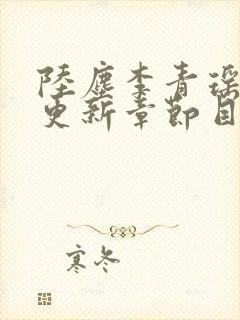 陸塵李青瑶
更新章節目
寒冬